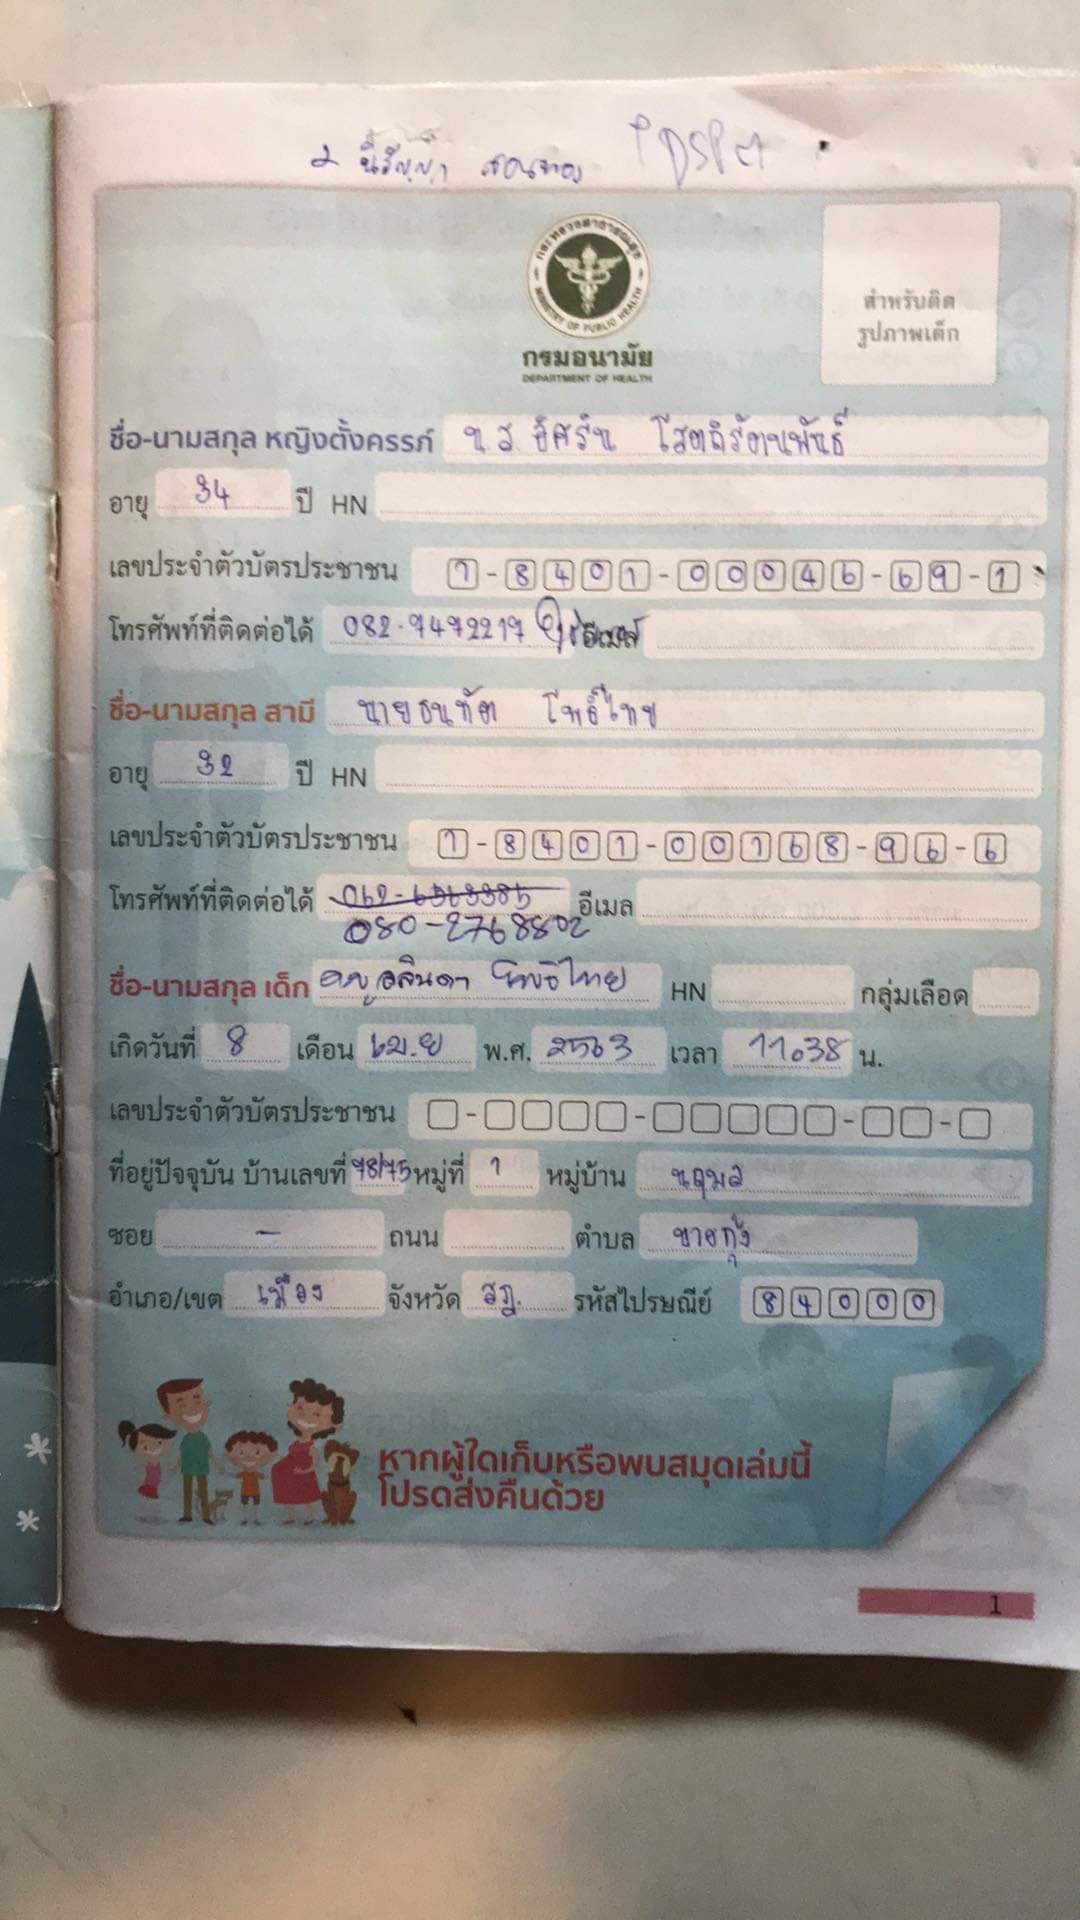 กระทรวงสาธารณสุข
MINISTRY OF PUBLIC HEALTH
กรมอนามัย
DEPARTMENT OF HEALTH
สำหรับติด
รูปภาพเด็ก
ชื่อ-นามสกุล หญิงตั้งครรภ์ น.ส. อิศริน โสตถิรัตนพันธ์
อายุ 34 ปี HN
เลขประจำตัวบัตรประชาชน 1-8401-00046-69-1
โทรศัพท์ที่ติดต่อได้ 082-9492217 อีเมล
ชื่อ-นามสกุล สามี นายธนทัต โพธิ์ไทย
อายุ 32 ปี HN
เลขประจำตัวบัตรประชาชน 1-8401-00168-96-6
โทรศัพท์ที่ติดต่อได้ 062-6563385 อีเมล
080-2768802
ชื่อ-นามสกุล เด็ก โพธิ์ไทย HN กลุ่มเลือด
เกิดวันที่ 8 เดือน เม.ย พ.ศ. 2563 เวลา 11.38 น.
เลขประจำตัวบัตรประชาชน
ที่อยู่ปัจจุบัน บ้านเลขที่ 78/75 หมู่ที่ 1 หมู่บ้าน นฤมล
ซอย - ถนน ตำบล บางกุ้ง
อำเภอ/เขต เมือง จังหวัด สฎ. รหัสไปรษณีย์ 84000
หากผู้ใดเก็บหรือพบสมุดเล่มนี้
โปรดส่งคืนด้วย
1